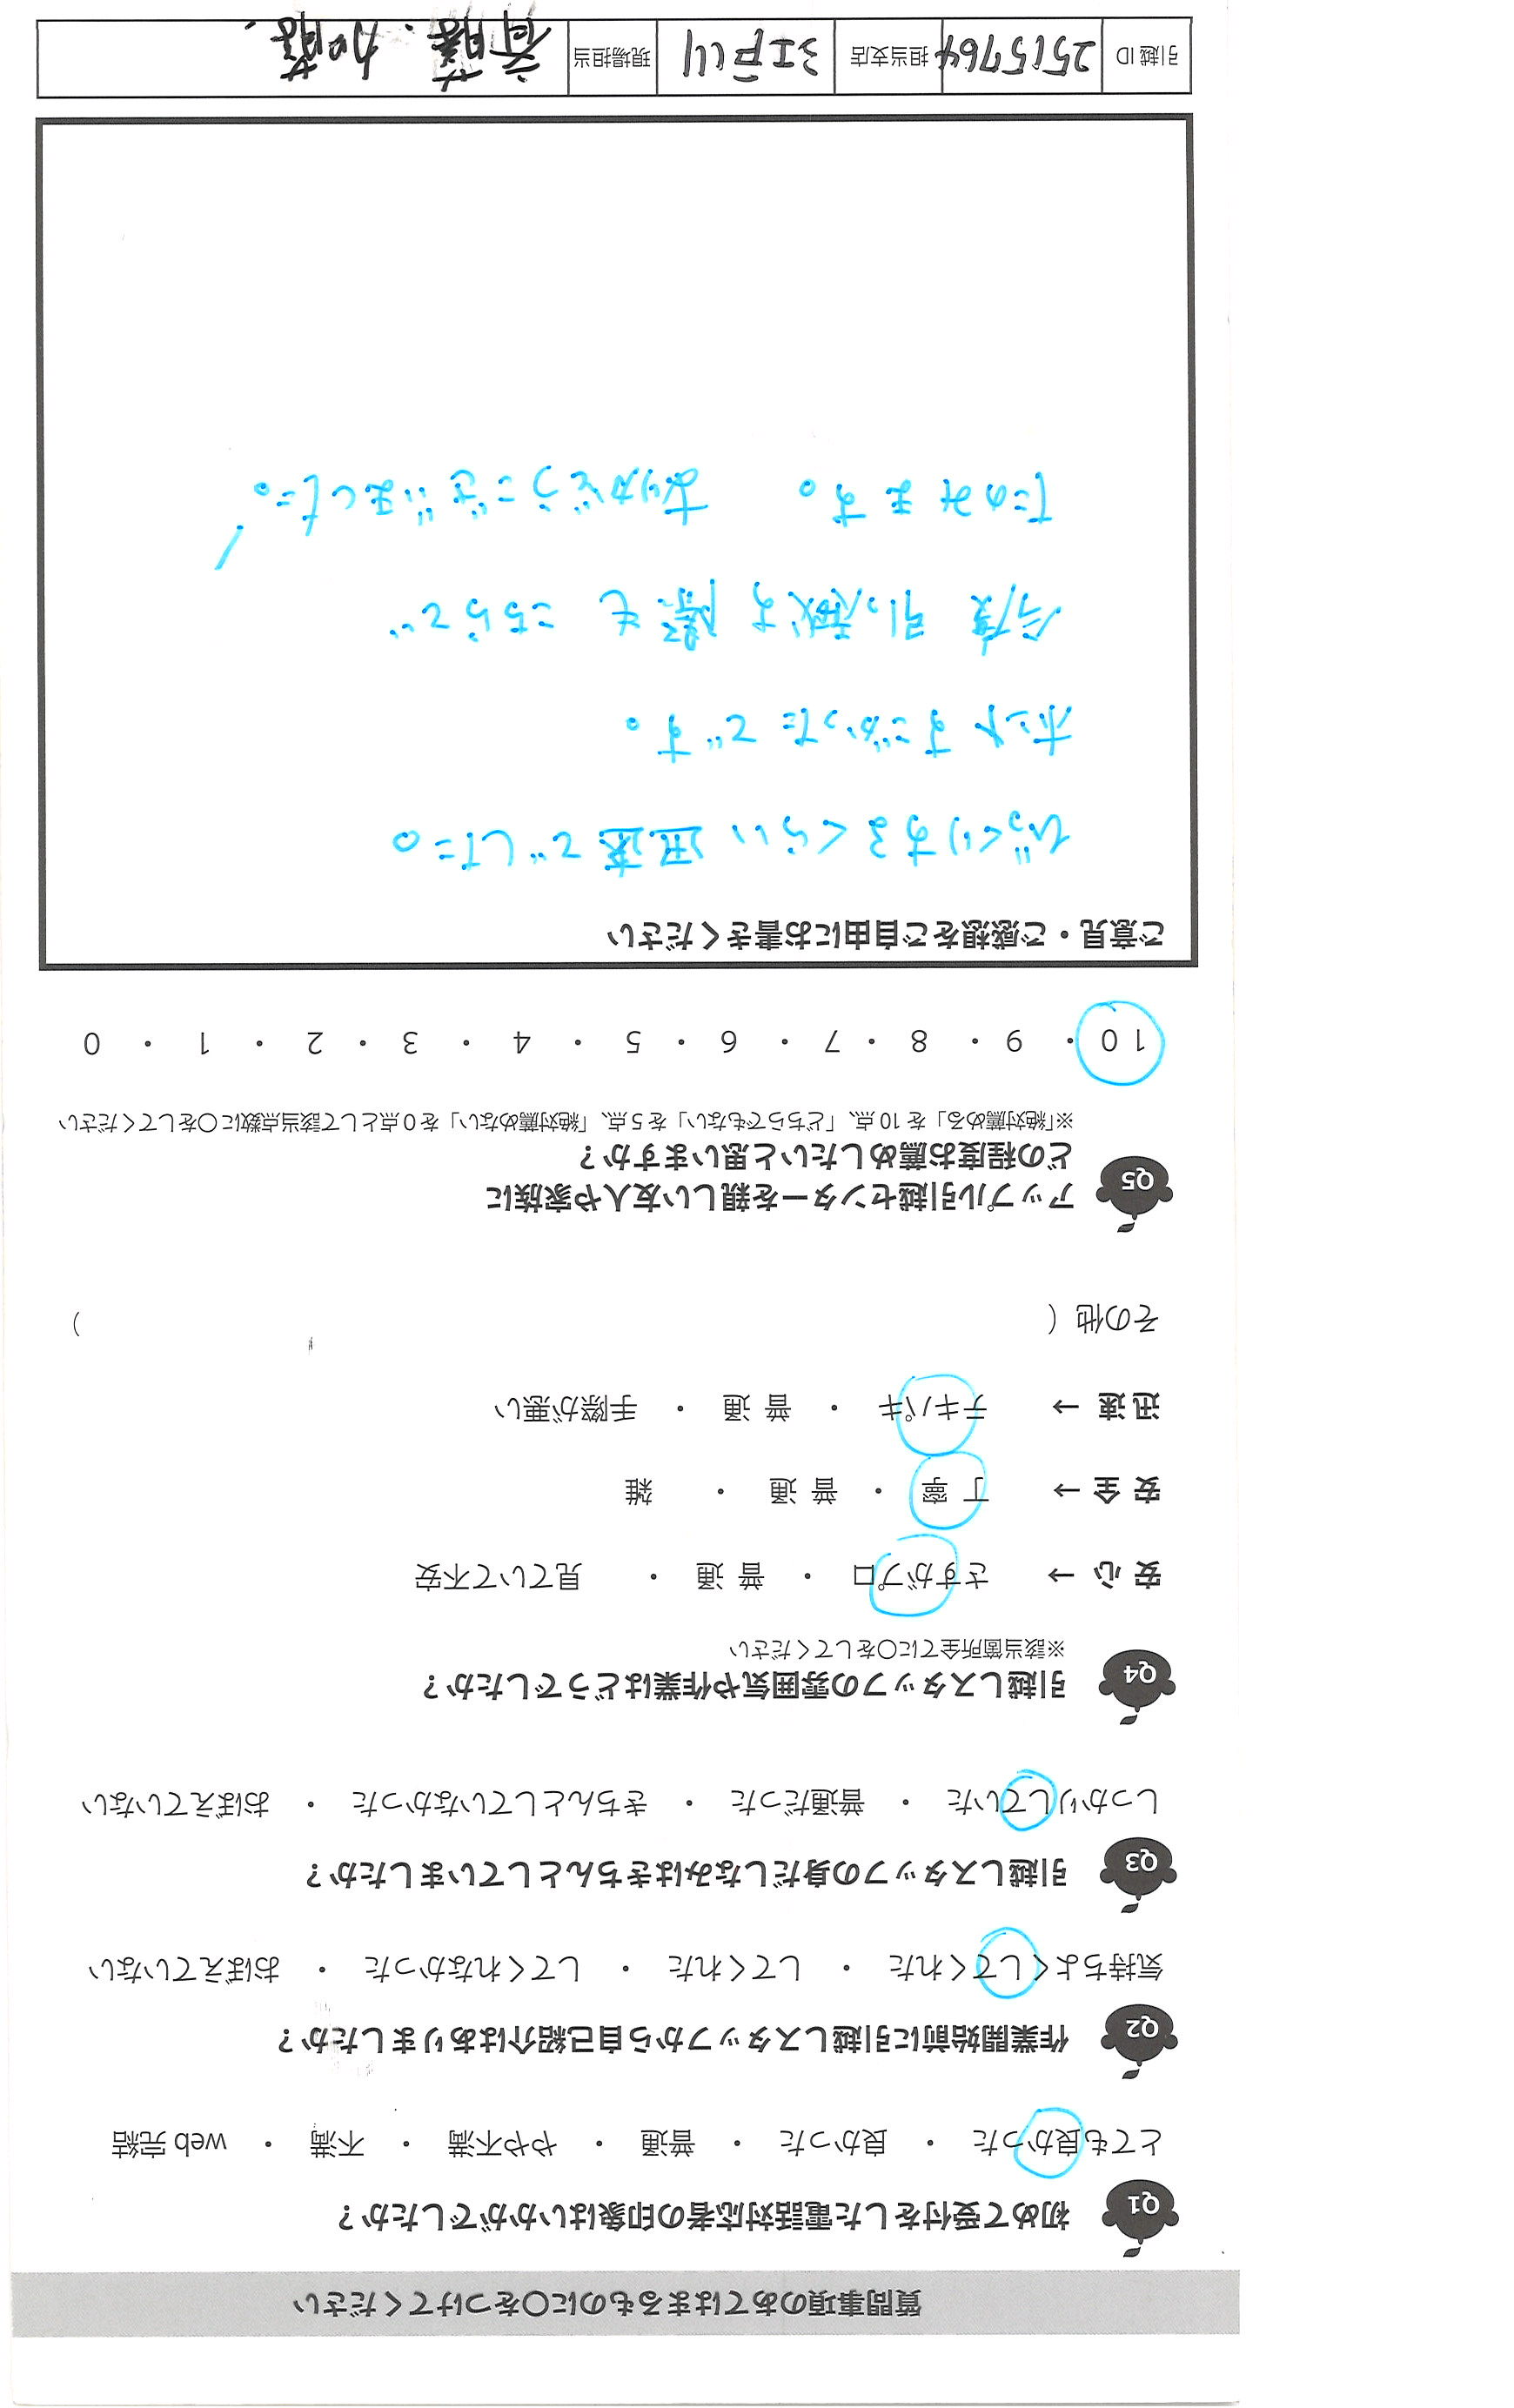 質問事項のあてはまるものに〇をつけてください
Q1 初めて受付をした電話対応者の印象はいかがでしたか？
とても良かった ・ 良かった ・ 普通 ・ やや不満 ・ 不満 ・ web 完結
Q2 作業開始前に引越しスタッフから自己紹介はありましたか？
気持ちよくしてくれた ・ してくれた ・ してくれなかった ・ おぼえていない
Q3 引越しスタッフの身だしなみはきちんとしていましたか？
しっかりしていた ・ 普通だった ・ きちんとしていなかった ・ おぼえていない
Q4 引越しスタッフの雰囲気や作業はどうでしたか？
※該当箇所全てに〇をしてください
安心 → さすがプロ ・ 普通 ・ 見ていて不安
安全 → 丁寧 ・ 普通 ・ 雑
迅速 → テキパキ ・ 普通 ・ 手際が悪い
その他（ ）
Q5 アップル引越センターを親しい友人や家族に
どの程度お薦めしたいと思いますか？
※「絶対薦める」を 10 点、「どちらでもない」を 5 点、「絶対薦めない」を 0 点として該当点数に〇をしてください
10 ・ 9 ・ 8 ・ 7 ・ 6 ・ 5 ・ 4 ・ 3 ・ 2 ・ 1 ・ 0
ご意見・ご感想をご自由にお書きください
びっくりするくらい 迅速でした。
ホントすごかったです。
今度 引っ越す際も こちらで
たのみます。 ありがとうございました。
引越 ID 2515764 担当支店 江戸川 現場担当 斉藤．加藤．